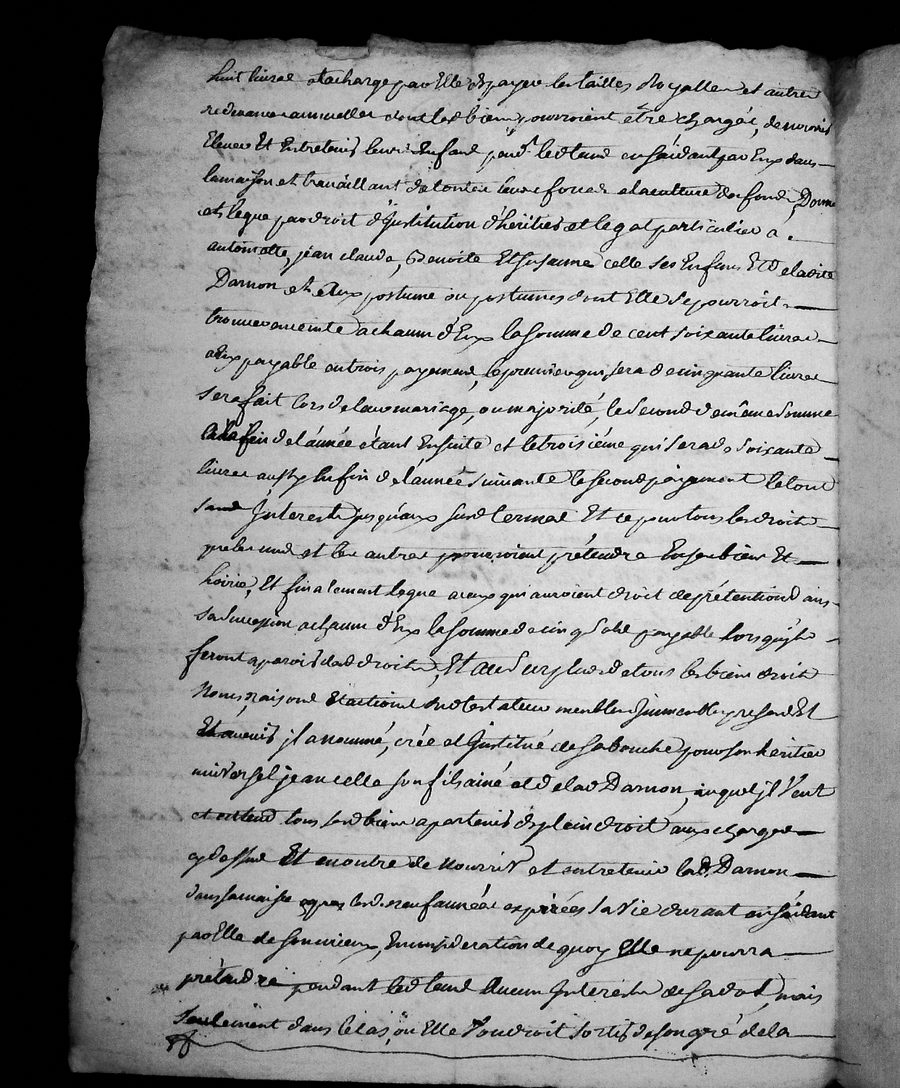 huit livres et a charge par Elle de payer les tailles Royalles et autres
redevances annuelles dont les d biens pourroient être chargés, de nourrir
Elever Et Entretenir leurs Enfans pend.t led temps en s'aidant par Eux dans
la maison et travaillant de toutes leurs forces a la culture des fonds, Donne
et legue par droit d'Institution d'hëritiers et legat particulier a
antoinette, jean claude, Benoite Et Susanne celle ses Enfans Et de la dite
Darnon et aux postume ou postumes dont Elle se pourroit
trouver enceinte a chacun d'Eux la somme de cent soixante livres
a Eux payable en trois payemens, le premier qui sera de cinquante livres
sera fait lors de leur mariage, ou majorité, le second de même somme
a la fin de l'année étant Ensuite et le troisiéme qui sera de soixante
livres aussy En fin de l'année suivante le second payement le tout
sans Interests jusqu'aux susd termes Et ce pour tous les droits
que les uns et les autres pourroient prétendre En ses biens Et
hoirie, Et finalement legue a ceux qui auroient droit de prétention dans
sa succession a chacun d'Eux la somme de cinq sols payable lorsqu'ils
feront aparoir desd droits, Et au Surplus de tous les biens droits
Noms, raisons Et actions dud testateur meubles Immeubles presens Et
Et avenir jl a nommé, crée et Institué de sa bouche pour son heritier
universel jean celle son fils ainé et de lad Darnon, auquel jl Veut
et entend tous sesd biens apartenir de plein droit aux charges
cy dessus Et encontre de nourrir et entretenir lad. Darnon
dans sa maison apres lesd neuf années expirées sa vie durant en s'aidant
par Elle de son mieux, En considération de quoy Elle ne pourra
prétendre pendant led temps Aucun Interests de sa dot, mais
Seulement dans le cas, où Elle Voudroit sortir de son gré de la